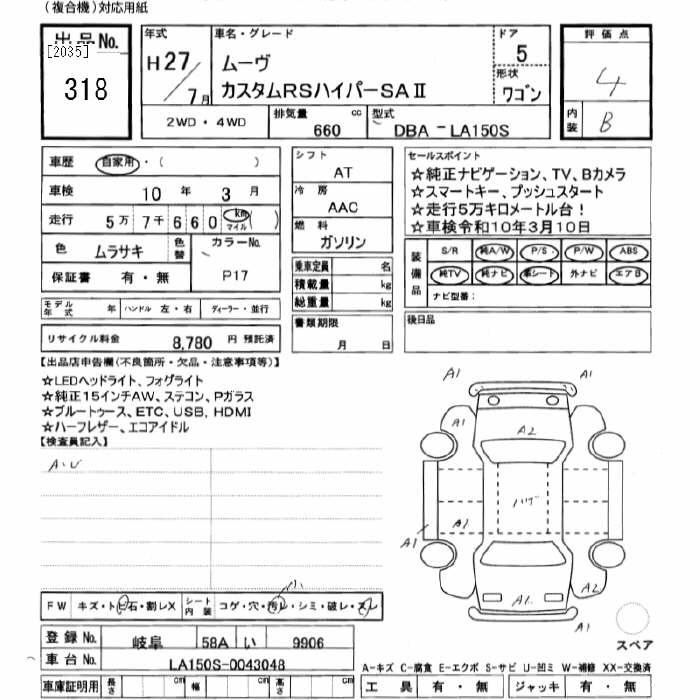 (複合機)対応用紙
出品No.
[2035]
318
年式
H27/7月
車名・グレード
ムーヴ
カスタムRSハイパーSAⅡ
ドア
5
形状
ワゴン
評価点
4
内装
B
2WD・4WD
排気量
660 cc
型式
DBA-LA150S
車歴 自家用・( )
車検 10年 3月
走行 5万7千660 km マイル ( )
色 ムラサキ 色替
カラーNo.
P17
保証書 有・無
モデル年式 年 ハンドル 左・右 ディーラー・並行
リサイクル料金 8,780 円 預託済
シフト
AT
冷房
AAC
燃料
ガソリン
乗車定員 名
積載量 kg
総重量 kg
書類期限
月 日
セールスポイント
☆純正ナビゲーション、TV、Bカメラ
☆スマートキー、プッシュスタート
☆走行5万キロメートル台!
☆車検令和10年3月10日
装備品
S/R 純A/W P/S P/W ABS
純TV 純ナビ 革シート 外ナビ エアB
ナビ型番:
後日品
【出品店申告欄(不良箇所・欠品・注意事項等)】
☆LEDヘッドライト、フォグライト
☆純正15インチAW、ステコン、Pガラス
☆ブルートゥース、ETC、USB、HDMI
☆ハーフレザー、エコアイドル
【検査員記入】
A・U
A1
A1
A1
A2
A1
A1
A1
A2
A1
A1
FW キズ・トビ石・割レX
シート内装 コゲ・穴・汚レ・シミ・破レ・スレ
登録No. 岐阜 58A い 9906
車台No. LA150S-0043048
車庫証明用 長さ cm 幅 cm 高さ cm
スペア
A-キズ C-腐食 E-エクボ S-サビ U-凹ミ W-補修 XX-交換済
工具 有・無 ジャッキ 有・無